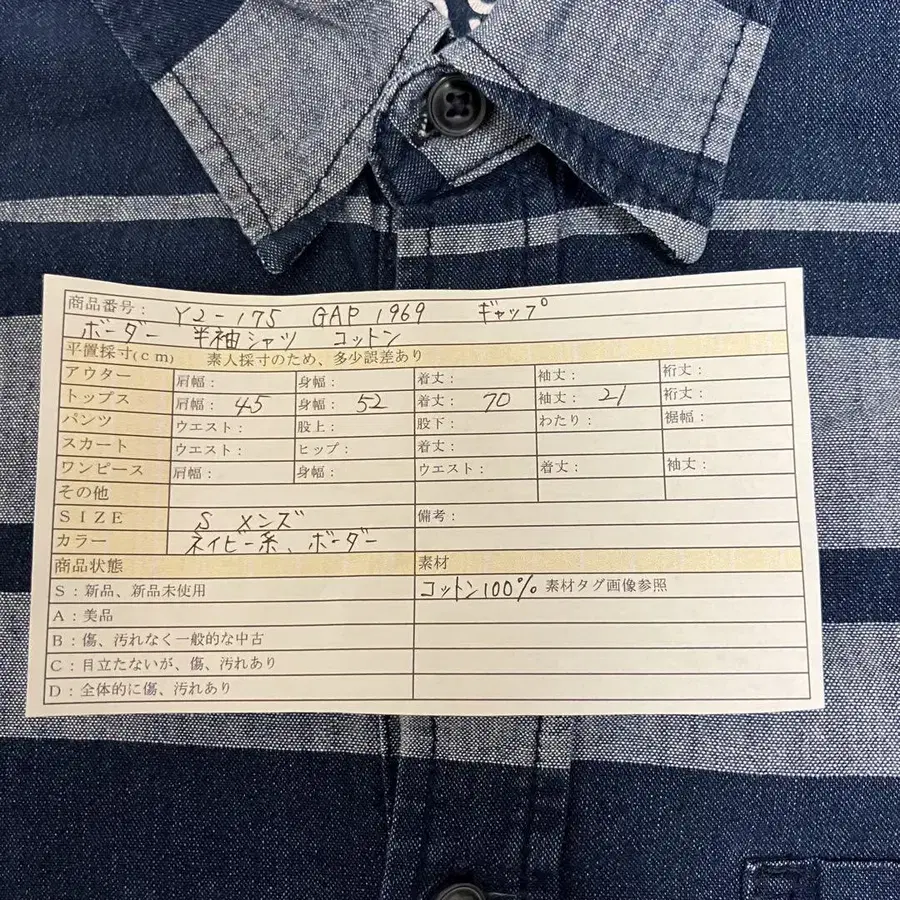 商品番号： Y2-175 GAP 1969 ギャップ
ボーダー 半袖シャツ コットン
平置採寸(cm) 素人採寸のため、多少誤差あり
アウター 肩幅： 身幅： 着丈： 袖丈： 裄丈：
トップス 肩幅： 45 身幅： 52 着丈： 70 袖丈： 21 裄丈：
パンツ ウエスト： 股上： 股下： わたり： 裾幅：
スカート ウエスト： ヒップ： 着丈：
ワンピース 肩幅： 身幅： ウエスト： 着丈： 袖丈：
その他
SIZE S メンズ 備考：
カラー ネイビー系、ボーダー
商品状態 素材
S：新品、新品未使用 コットン100% 素材タグ画像参照
A：美品
B：傷、汚れなく一般的な中古
C：目立たないが、傷、汚れあり
D：全体的に傷、汚れあり